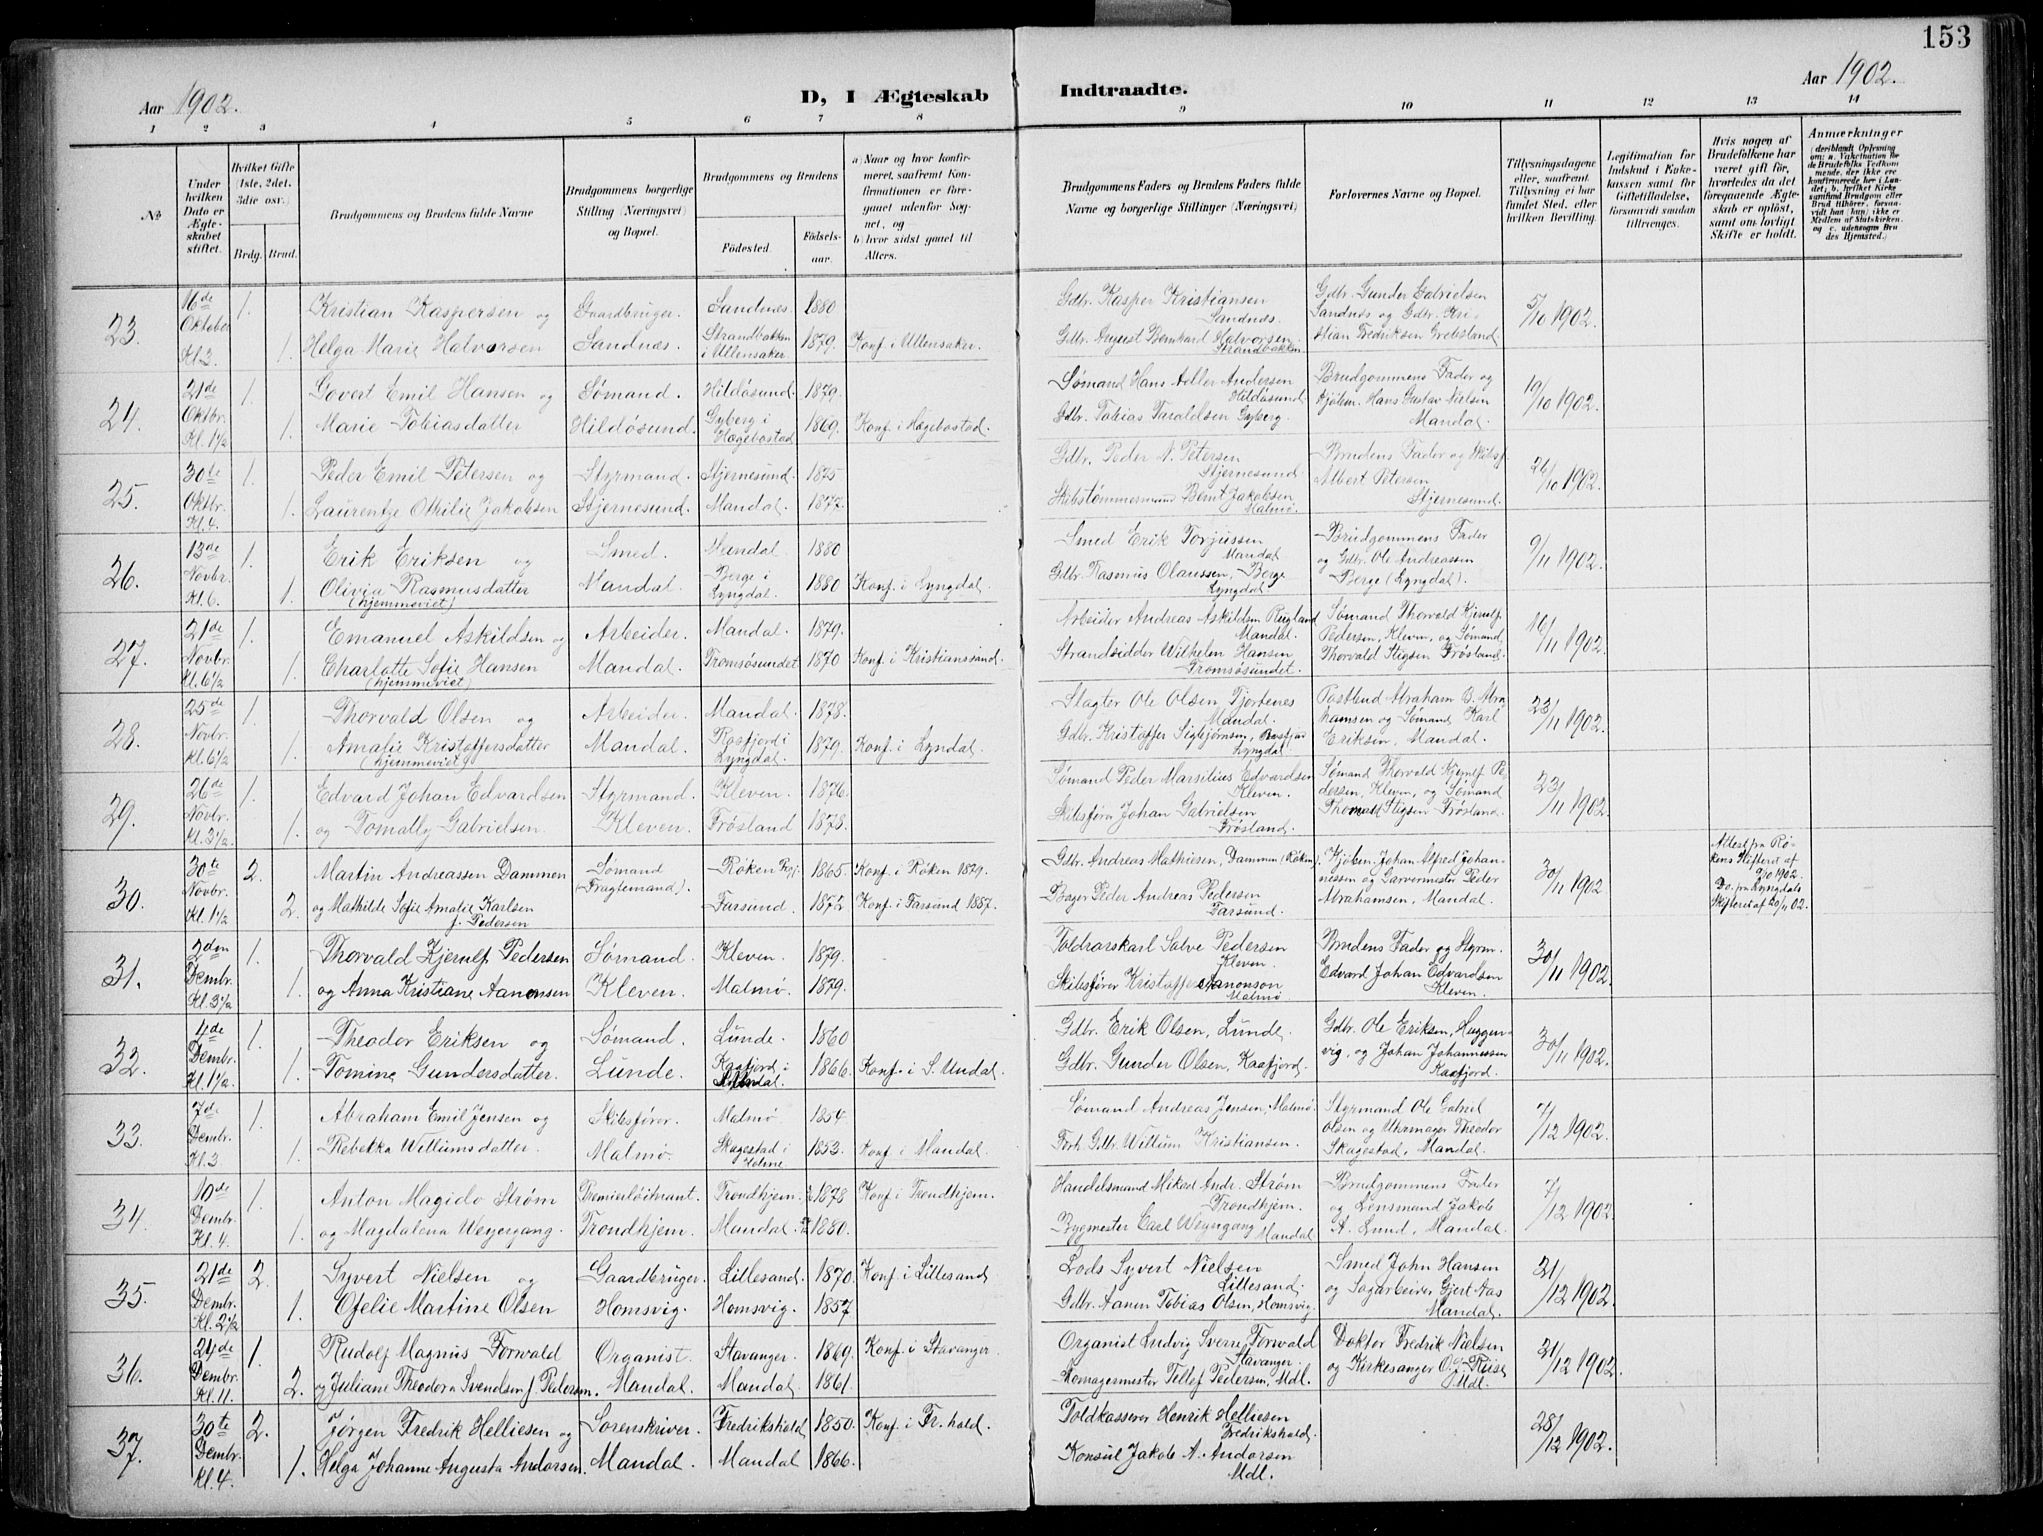 153
Aar 1902.
D, I Ægteskab Indtraadte.
Aar 1902.
1 2 3 4 5 6 7 8 9 10 11 12 13 14
№
Under hvilken Dato er Ægteskabet stiftet.
Hvilket Gifte (1ste, 2det, 3die osv.)
Brdg. Brud.
Brudgommens og Brudens fulde Navne
Brudgommens borgerlige Stilling (Næringsvei) og Bopæl.
Brudgommens og Brudens
Fødested.
Fødselsaar.
a) Naar og hvor konfirmeret, saafremt Konfirmationen er foregaaet udenfor Sognet, og
b) hvor sidst gaaet til Alters.
Brudgommens Faders og Brudens Faders fulde Navne og borgerlige Stillinger (Næringsvei)
Forlovernes Navne og Bopæl.
Tillysningsdagene eller, saafremt Tillysning ei har fundet Sted, efter hvilken Bevilling.
Legitimation for Indskud i Enkekassen samt for Giftetilladelse, forsaavidt saadan tiltrænges.
Hvis nogen af Brudefolkene har været gift før, hvorledes da det foregaaende Ægteskab er opløst, samt om lovligt Skifte er holdt.
Anmærkninger
23. 16de Oktober Kl. 3. 1. 1.
Kristian Kaspersen og
Helga Marie Halvorsen
Gaardbruger. Sandnæs.
Sandnæs 1880
Strandbakken i Ullensaker. 1879. Konf. i Ullensaker.
Gdbr. Kasper Kristiansen Sandnæs.
Gdbr. August Bernhard Halvorsen Strandbakken
Gdbr. Gunder Gabrielsen Sandnæs og Gdbr. Kristian Fredriksen Grebsland.
5/10 1902.
24. 21de Oktbr. Kl. 1½ 1. 1.
Govert Emil Hansen og
Marie Tobiasdatter
Sømand. Hildøsund.
Hildøsund. 1879.
Gyberg i Hægebostad 1869. Konf. i Hægebostad.
Sømand Hans Adler Andersen Hildøsund.
Gdbr. Tobias Taraldsen Gyberg.
Brudgommens Fader og Kjøbm. Hans Gustav Nielsen Mandal.
19/10 1902.
25. 30te Oktbr. Kl. 4. 1. 1.
Peder Emil Petersen og
Laurentze Othilie Jakobsen
Styrmand. Stjernesund.
Stjernesund. 1875
Mandal. 1877.
Gdbr. Peder N. Petersen Stjernesund.
Skibstømmermand Bernt Jakobsen Malmø.
Brudens Fader og Skibsf. Albert Petersen Stjernesund.
26/10 1902.
26. 13de Novbr. Kl. 6. 1. 1.
Erik Eriksen og
Olivia Rasmusdatter
(hjemmeviet)
Smed. Mandal.
Mandal. 1880
Berge i Lyngdal. 1880 Konf. i Lyngdal.
Smed Erik Torjussen Mandal
Gdbr. Rasmus Olaussen, Berge Lyngdal
Brudgommens Fader og Gdbr. Ole Andreassen Berge (Lyngdal).
9/11 1902.
27. 21de Novbr. Kl. 6½ 1. 1.
Emanuel Askildsen og
Charlotte Sofie Hansen
(hjemmeviet)
Arbeider. Mandal.
Mandal. 1879.
Tromsøsundet 1870 Konf. i Kristianssand.
Arbeider Andreas Askildsen Rugland Mandal.
Strandsidder Wilhelm Hansen Tromsøsundet.
Sømand Thorvald Kjerulf Pedersen, Kleven, og Sømand Thorvald Stigsen Frøsland.
16/11 1902.
28. 25de Novbr. Kl. 6½ 1. 1.
Thorvald Olsen og
Amalie Kristoffersdatter
(hjemmeviet)
Arbeider. Mandal.
Mandal. 1878.
Rosfjord i Lyngdal. 1879. Konf. i Lyndal.
Slagter Ole Olsen Tjortenes Mandal.
Gdbr. Kristoffer Sigbjørnsen, Rosfjord Lyngdal
Postbud Abraham B. Abrahamsen og Sømand Karl Eriksen, Mandal.
23/11 1902.
29. 26de Novbr. Kl. 3½. 1. 1.
Edvard Johan Edvardsen
og Tomally Gabrielsen.
Styrmand. Kleven.
Kleven. 1876.
Frøsland 1878.
Sømand Peder Marsilius Edvardsen Kleven.
Skibsfører Johan Gabrielsen Frøsland.
Sømand Thorvald Kjerulf Pedersen, Kleven, og Sømand Thorvald Stigsen Frøsland.
23/11 1902.
30. 30te Novbr. Kl. 1½ 2. 2.
Martin Andreassen Dammen
og Mathilde Sofie Amalie Karlsen f. Pedersen
Sømand (Fragtemand).
Røken Prgj. 1865. Konf. i Røken 1879.
Farsund. 1872 Konf. i Farsund 1887.
Gdbr. Andreas Mathiesen, Dammen (Røken).
Bager Peder Andreas Pedersen Farsund.
Kjøbm. Johan Alfred Johannessen og Garvermester Peder Abrahamsen, Mandal.
30/11 1902
Attest fra Røkens Skifteret af 9/10 1902.
Do. fra Lyngdals Skifteret af 20/11 02.
31. 2den Dembr. Kl. 3½ 1. 1.
Thorvald Kjerulf Pedersen
og Anna Kristiane Aanonsen
Sømand. Kleven.
Kleven. 1879.
Malmø. 1879.
Toldrorskarl Salve Pedersen Kleven.
Skibsfører Kristoffer Aanonson Malmø.
Brudens Fader og Styrm. Edvard Johan Edvardsen Kleven.
30/11 1902.
32. 4de Dembr. Kl. 1½ 1. 1.
Theodor Eriksen og
Tomine Gundersdatter.
Sømand. Lunde.
Lunde. 1860
Kaafjord i 1866. Konf. i S. Undal.
Gdbr. Erik Olsen, Lunde.
Gdbr. Gunder Olsen, Kaafjord.
Gdbr. Ole Eriksen, Huggenvig, og Johan Johannessen Kaafjord.
30/11 1902.
33. 7de Dembr. Kl. 3 1. 1.
Abraham Emil Jensen og
Rebekka Willumsdatter.
Skibsfører. Malmø.
Malmø 1854.
Skagestad i Holme 1853. Konf. i Mandal.
Sømand Andreas Jensen, Malmø.
Frh. Gdbr. Willum Kristiansen.
Styrmand Ole Gabriel Olsen og Uhrmager Theodor Skagestad, Mandal.
7/12 1902.
34. 10de Dembr. Kl. 4. 1. 1.
Anton Magido Strøm
og Magdalena Weyergang.
Premierløitnant. Trondhjem.
Trondhjem. 1878 Konf. i Trondhjem.
Mandal. 1880.
Handelsmand Mikael Andr. Strøm Trondhjem.
Bygmester Carl Weyergang Mandal
Brudgommens Fader og Lensmand Jakob A. Lund, Mandal.
7/12 1902.
35. 21de Dembr. Kl. 2½ 2. 1.
Syvert Nielsen og
Ofelie Martine Olsen
Gaardbruger. Homsvig.
Lillesand. 1870. Konf. i Lillesand
Homsvig. 1857
Lods Syvert Nielsen Lillesand.
Gdbr. Aanen Tobias Olsen, Homsvig.
Smed John Hansen og Sagarbeider Gjert Aas Mandal.
21/12 1902.
36. 24de Dembr. Kl. 11. 1. 2.
Rudolf Magnus Forwald
og Juliane Theodora Svendsen f. Pedersen.
Organist. Mandal.
Stavanger. 1869. Konf. i Stavanger.
Mandal. 1861.
Organist Ludvig Sverre Forwald Stavanger.
Skomagermester Tellef Pedersen, Mdl.
Doktor Fredrik Nielsen og Kirkesanger O. J. Riise Mdl.
21/12 1902.
37. 30te Dembr. Kl. 4. 2. 1.
Jørgen Fredrik Helliesen og
Helga Johanne Augusta Andorsen.
Sorenskriver. Mandal.
Fredrikshald 1850. Konf. i Fr.hald.
Mandal 1866.
Toldkasserer Henrik Helliesen Fredrikshald.
Konsul Jakob A. Andorsen Mdl.
28/12 1902.